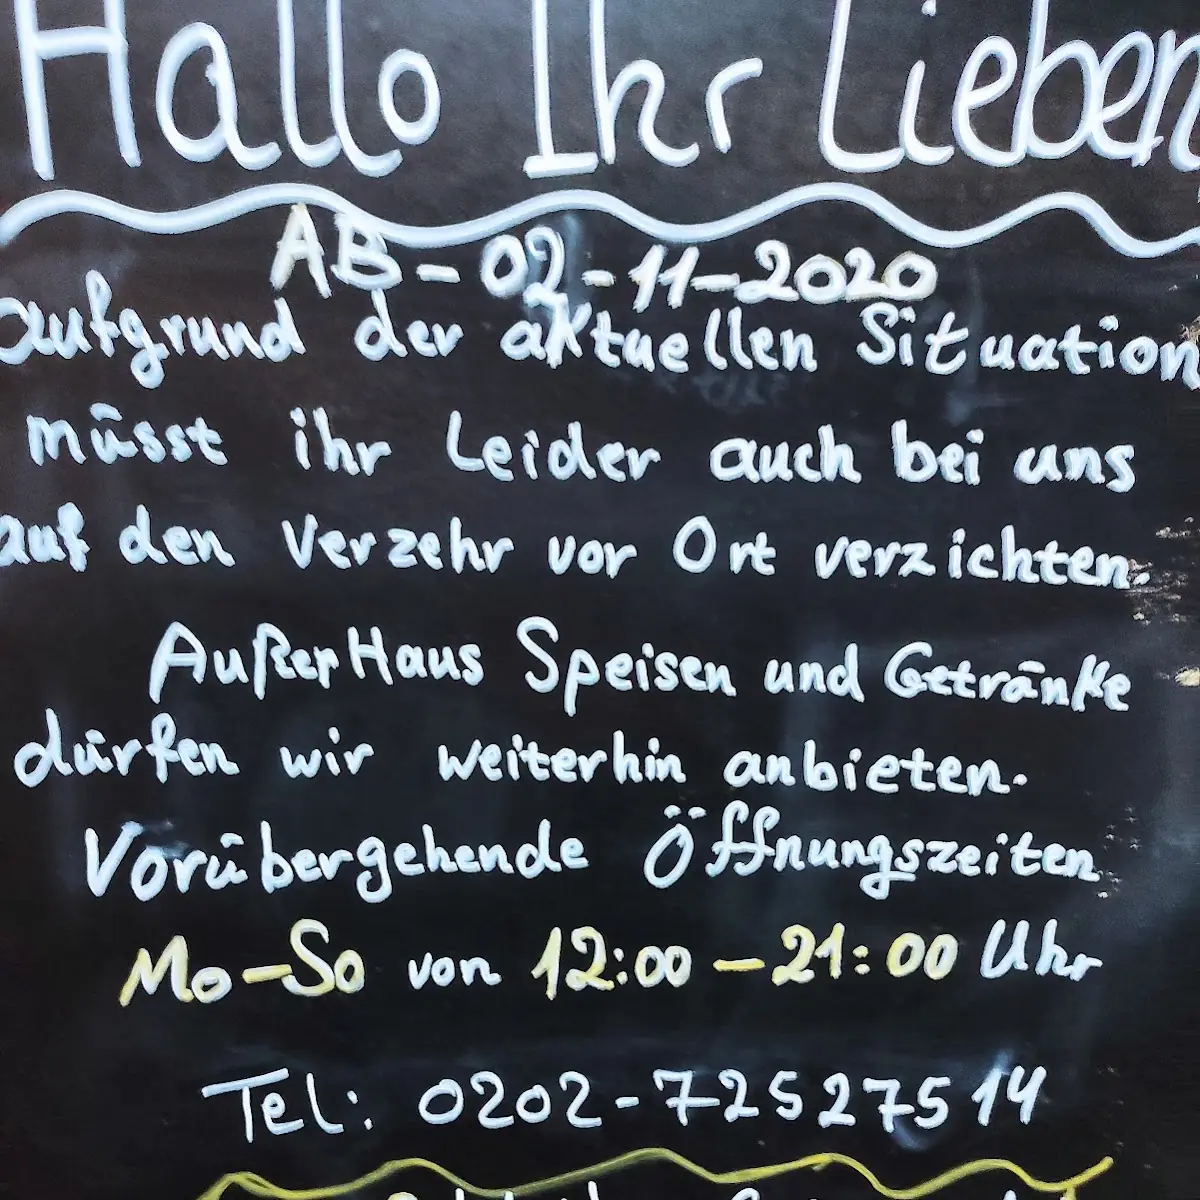 Hallo Ihr Lieben
AB-02-11-2020
aufgrund der aktuellen Situation
müsst ihr Leider auch bei uns
auf den Verzehr vor Ort verzichten.
AußerHaus Speisen und Getränke
dürfen wir weiterhin anbieten.
Vorübergehende Öffnungszeiten
Mo-So von 12:00 - 21:00 Uhr
Tel: 0202-72527514